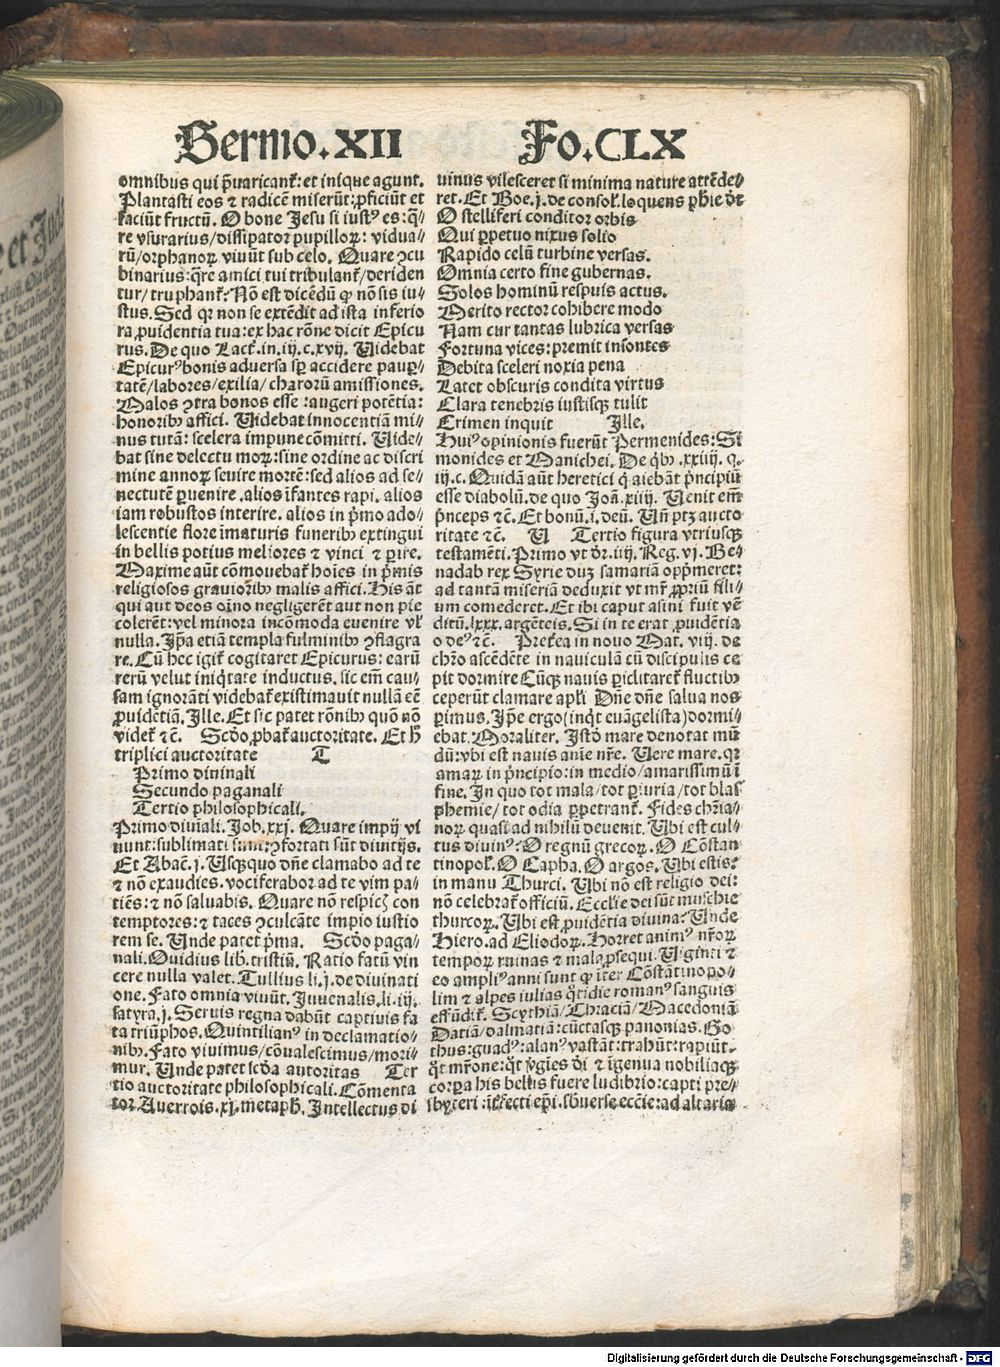 Sermo.XII Fo.CLX
omnibus qui p̄uaricant᷑: et inique agunt.
Plantasti eos ⁊ radicē miserūt: ꝓficiūt et
faciūt fructū. O bone Jesu si iustꝰ es: q̄⸗
re vsurarius/dissipator pupilloꝝ: vidua⸗
rū/orphanoꝝ viuūt sub celo. Quare ꝯcu
binarius: qre amici tui tribulant᷑/deriden
tur/truphant᷑: Nō est dicēdū ꝙ nō sis iu⸗
stus. Sed qꝛ non se extēdit ad ista inferio
ra ꝓuidentia tua: ex hac rōne dicit Epicu
rus. De quo Lact. in. iij. c. xvij. Uidebat
Epicurꝰ bonis aduersa sꝑ accidere pauꝑ⸗
tatē/labores/exilia/charorū amissiones.
Malos ꝯtra bonos esse: augeri potētia:
honoribꝰ affici. Uidebat innocentiā mi⸗
nus tutā: scelera impune cōmitti. Uide⸗
bat sine delectu moꝝ: sine ordine ac discri
mine annoꝝ seuire mortē: sed alios ad se⸗
nectutē ꝑuenire. alios īfantes rapi. alios
iam robustos interire. alios in p̄mo ado⸗
lescentie flore īmaturis funeribꝰ extingui
in bellis potius meliores ⁊ vinci ⁊ ꝑire.
Maxime aūt cōmouebat᷑ hoīes in p̄mis
religiosos grauioribꝰ malis affici. His āt
qui aut deos oīno negligerēt aut non pie
colerēt: vel minora incōmoda euenire vꝉ
nulla. Jp̄a etiā templa fulminibꝰ ꝯflagra
re. Cū hec igit᷑ cogitaret Epicurus: earū
rerū velut iniqͥtate inductus. sic em̄ cau⸗
sam ignorāti videbat᷑ existimauit nullā eē
ꝓuidētiā. Jlle. Et sic patet rōnibꝰ quō nō
videt᷑ ⁊c̄. Scd̄o ꝓbat᷑ auctoritate. Et ħ
triplici auctoritate T
Primo diuinali
Secundo paganali
Tertio philosophicali.
Primo diuīali. Job. xxj. Quare impij vi
uunt: sublimati sunt: ꝯfortati sūt diuitijs.
Et Abac̄. j. Usqꝫquo dn̄e clamabo ad te
⁊ nō exaudies. vociferabor ad te vim pa⸗
tiēs: ⁊ nō saluabis. Quare nō respicꝭ con
temptores: ⁊ taces ꝯculcāte impio iustio
rem se. Unde patet p̄ma. Scd̄o paga⸗
nali. Ouidius lib. tristiū. Ratio fatū vin
cere nulla valet. Tullius li. j. de diuinati
one. Fato omnia viuūt. Juuenalis. li. iij.
satyra. j. Seruis regna dabūt captiuis fa
ta triūphos. Quintilianꝰ in declamatio⸗
nibꝰ. Fato viuimus/cōualescimus/mori⸗
mur. Unde patet scd̄a autoritas Ter
tio auctoritate philosophicali. Cōmenta
tor Auerrois. xj. metaph̄. Intellectus di
uinus vilesceret si minima nature attēde⸗
ret. Et Boe. j. de consol. loquens ꝑ hie d̄t
O stelliferi conditor orbis
Qui ꝑpetuo nixus solio
Rapido celū turbine versas.
Omnia certo fine gubernas.
Solos hominū respuis actus.
Merito rector cohibere modo
Nam cur tantas lubrica versas
Fortuna vices: premit insontes
Debita sceleri noxia pena
Latet obscuris condita virtus
Clara tenebris iustisqꝫ tulit
Crimen inquit Jlle.
Huiꝰ opinionis fuerūt Permenides: Si
monides et Manichei. De qͥbꝰ .xxiiij. q.
iij. c. Quidā aūt heretici q̄ aiebāt p̄ncipiū
esse diabolū. de quo Joā. xiiij. Uenit em̄
p̄nceps ⁊c̄. Et bonū. i. deū. Un̄ ptꝫ aucto
ritate ⁊c̄. U Tertio figura vtriusqꝫ
testamēti. Primo vt d̄r. iiij. Reg. vj. Be⸗
nadab rex Syrie duꝫ samariā opp̄meret:
ad tantā miseriā deduxit vt mr̄ ꝓpriū fili⸗
um comederet. Et ibi caput asini fuit vē
ditū. lxxx. argēteis. Si in te erat ꝓuidētia
o deꝰ ⁊c̄. Preterea in nouo Mat. viij. de
chr̄o ascēdēte in nauiculā cū discipulis ce
pit dormire Cūqꝫ nauis ꝑiclitaret᷑ fluctibꝰ
ceperūt clamare apl̄i Dn̄e dn̄e salua nos
ꝑimus. Jp̄e ergo (inqͥt euāgelista) dormi⸗
ebat. Moraliter. Jstd̄ mare denotat mū
dū: vbi est nauis aīe nr̄e. Uere mare. qꝛ
amaꝝ in p̄ncipio: in medio/amarissimū ī
fine. In quo tot mala/tot ꝑiuria/tot blas
phemie/tot odia ꝑpetrant᷑. Fides chr̄ia⸗
noꝝ quasi ad nihilū deuenit. Ubi est cul⸗
tus diuinꝰ? O regnū grecoꝝ. O Cōstan
tinopol᷑. O Capha. O argos. Ubi estis?
in manu Thurci. Ubi nō est religio dei:
nō celebrat᷑ officiū. Ecclīe dei sūt muschie
thurcoꝝ. Ubi est ꝓuidētia diuina? Unde
Hiero. ad Eliodoꝝ. Horret animꝰ nr̄oꝝ
tempoꝝ ruinas ⁊ mala ꝓsequi. Uiginti ⁊
eo ampliꝰ anni sunt ꝙ īter Cōstātinopo⸗
lim ⁊ alpes iulias qͦtidie romanꝰ sanguis
effūdit᷑. Scythiā/Thraciā/Macedoniā
Datiā/dalmatiā: cūctasqꝫ panonias. Go⸗
thus: guadꝰ: alanꝰ vastāt: trahūt: rapiūt.
qͦt mr̄one: qͦt v̄gīes d̄i ⁊ īgenua nobiliaqꝫ
corꝑa his bellis fuere ludibrio: capti pre⸗
sbyteri: īterfecti ep̄i. sb̄uerse ecc̄ie: ad altaria
Digitalisierung gefördert durch die Deutsche Forschungsgemeinschaft - DFG